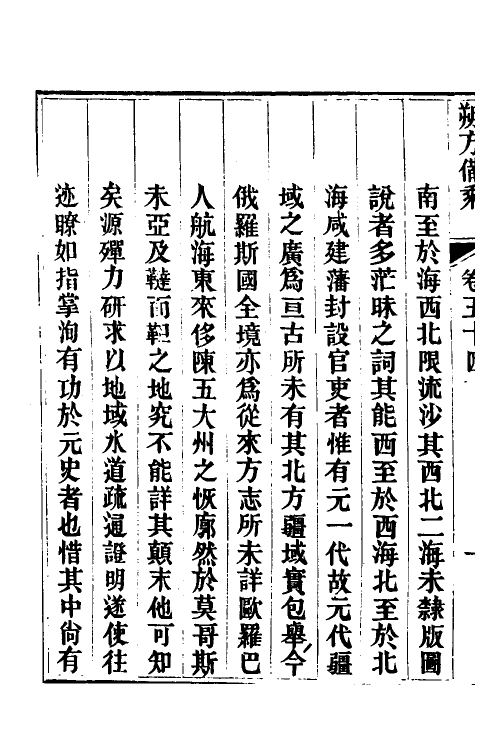 朔方備乘
卷五十四
一
南至於海西北限流沙其西北二海未隸版圖
說者多茫昧之詞其能西至於西海北至於北
海咸建藩封設官吏者惟有元一代故元代疆
域之廣爲亘古所未有其北方疆域實包舉今
俄羅斯國全境亦爲從來方志所未詳歐羅巴
人航海東來侈陳五大州之恢廓然於莫哥斯
未亞及韃而靼之地究不能詳其顛末他可知
矣源殫力研求以地域水道疏通證明遂使往
迹瞭如指掌洵有功於元史者也惜其中尙有